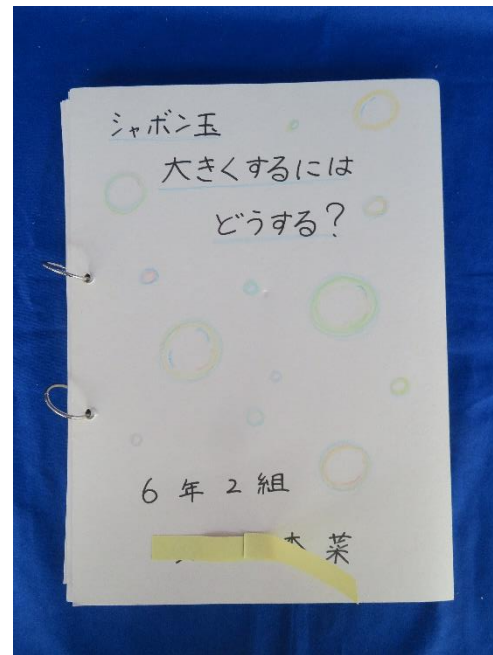 シャボン玉
大きくするには
どうする?
6年2組
菜